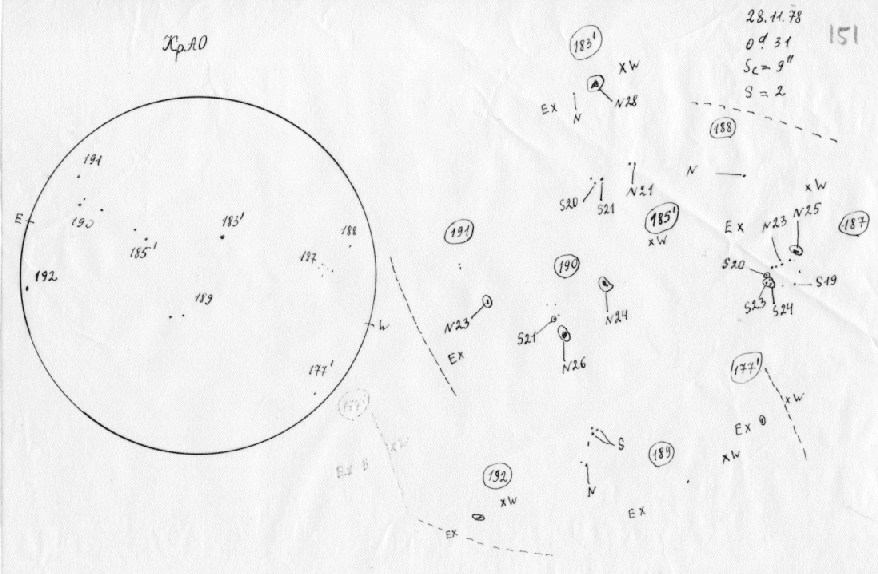 КрАО
28.11.78
0ᵈ.31
Sc = 9"
S = 2
151
191
E
190
185'
183'
188
187
192
189
W
177'
183'
xW
Ex
N
N28
188
N
S20
S21
N21
185'
xW
xW
Ex
N23
N25
187
S20
S19
S23
S24
191
N23
Ex
190
S21
N24
N26
177'
xW
Ex
177'
xW
Ex
S
189
xW
N
Ex
192
xW
Ex